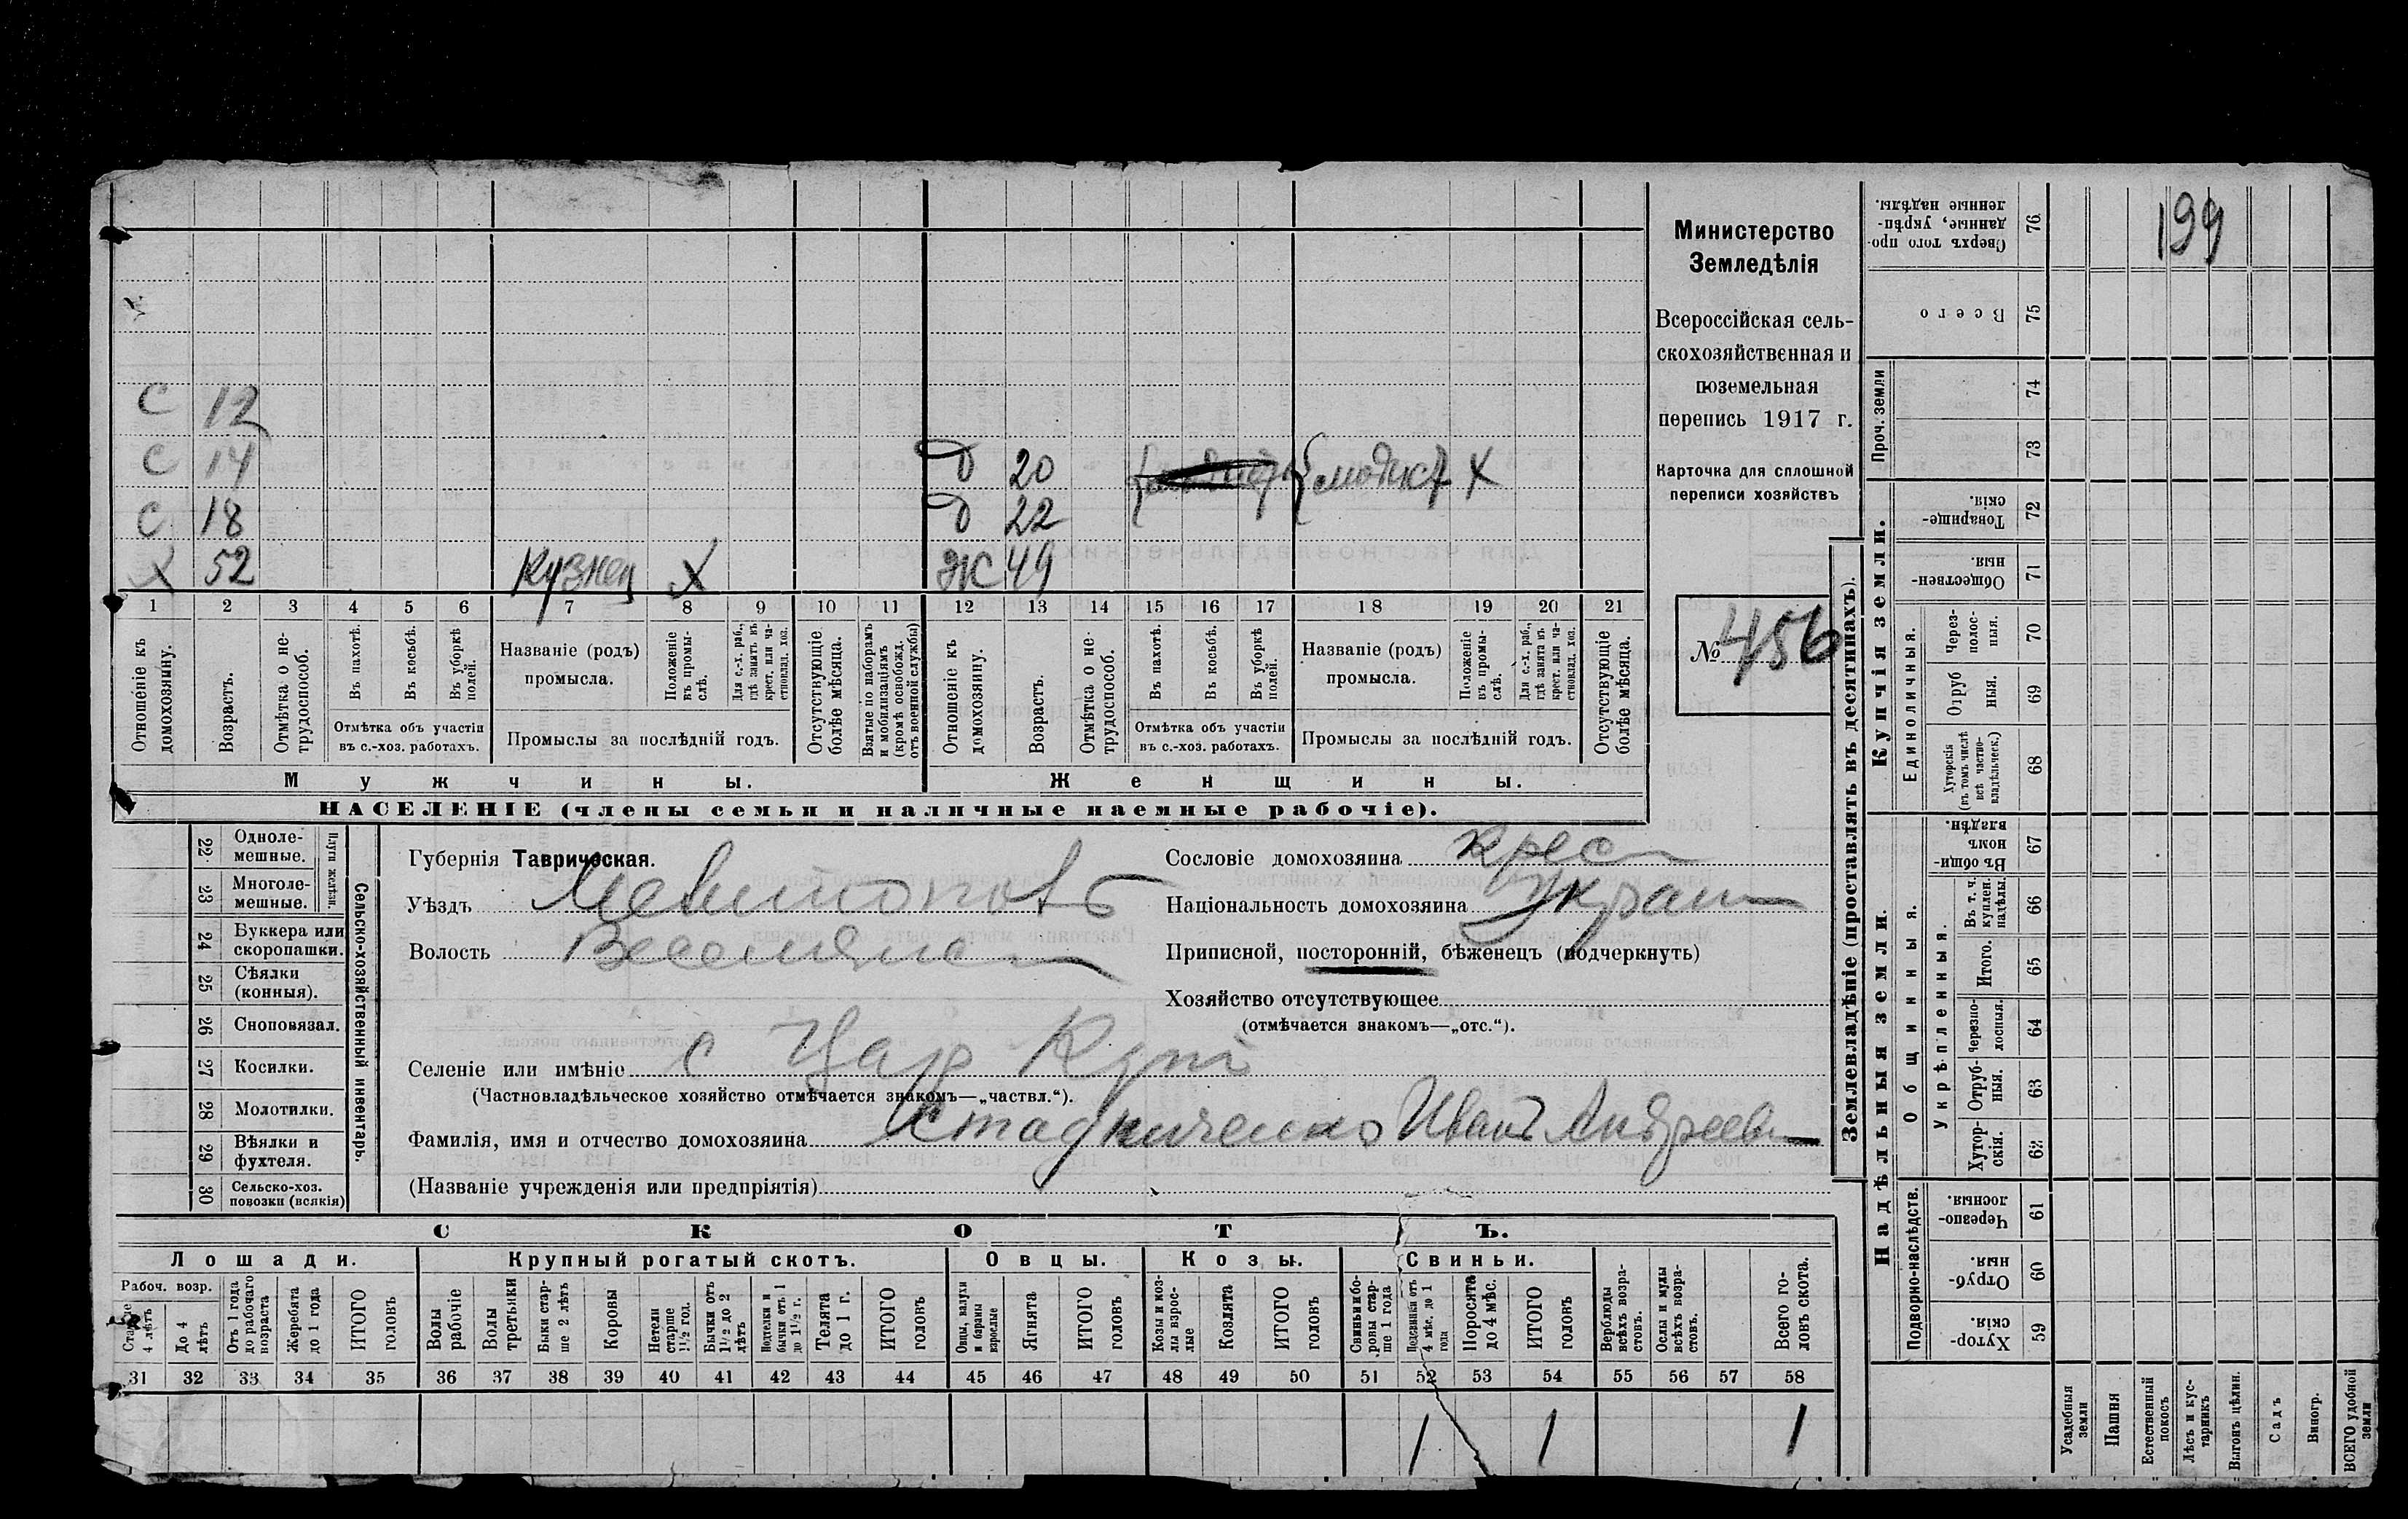 199
Министерство
Земледѣлія
Всероссійская сель-
скохозяйственная и
поземельная
перепись 1917 г.
Карточка для сплошной
переписи хозяйствъ
№ 456
С 12
С 14 Д 20 модистк X
С 18 Д 22
X 52 Кузнец X Ж 49
1 2 3 4 5 6 7 8 9 10 11 12 13 14 15 16 17 18 19 20 21
Отношеніе къ домохозяину.
Возрастъ.
Отмѣтка о не-трудоспособ.
Въ пахотѣ.
Въ косьбѣ.
Въ уборкѣ полей.
Отмѣтка объ участіи
въ с.-хоз. работахъ.
Названіе (родъ)
промысла.
Положеніе въ промы-слѣ.
Для с.-х. раб., гдѣ занятъ въ крест. или ча-стновлад. хоз.
Промыслы за послѣдній годъ.
Отсутствующіе болѣе мѣсяца.
Взятые по наборамъ и мобилизаціямъ (кромѣ освобожд. отъ военной службы)
Отношеніе къ домохозяину.
Возрастъ.
Отмѣтка о не-трудоспособ.
Въ пахотѣ.
Въ косьбѣ.
Въ уборкѣ полей.
Отмѣтка объ участіи
въ с.-хоз. работахъ.
Названіе (родъ)
промысла.
Положеніе въ промы-слѣ.
Для с.-х. раб., гдѣ занята въ крест. или ча-стновлад. хоз.
Промыслы за послѣдній годъ.
Отсутствующіе болѣе мѣсяца.
Мужчины. Женщины.
НАСЕЛЕНІЕ (члены семьи и наличные наемные рабочіе).
22 Одноле-мешные.
23 Многоле-мешные.
Плуги желѣзн.
24 Буккера или скоропашки.
25 Сѣялки (конныя).
26 Сноповязал.
27 Косилки.
28 Молотилки.
29 Вѣялки и фухтеля.
30 Сельско-хоз. повозки (всякія)
Сельско-хозяйственный инвентарь.
Губернія Таврическая.
Уѣздъ Мелитополь
Волость Веселянс
Селеніе или имѣніе с Цар Кут
(Частновладѣльческое хозяйство отмѣчается знакомъ—„частвл.“).
Фамилія, имя и отчество домохозяина Стадниченко Иванъ Андреев
(Названіе учрежденія или предпріятія)
Сословіе домохозяина крес
Національность домохозяина Украин
Приписной, посторонній, бѣженецъ (подчеркнуть)
Хозяйство отсутствующее
(отмѣчается знакомъ—„отс.“).
СКОТЪ.
Лошади. Крупный рогатый скотъ. Овцы. Козы. Свиньи.
Рабоч. возр.
Старше 4 лѣтъ
До 4 лѣтъ
Отъ 1 года до рабочаго возраста
Жеребята до 1 года
ИТОГО головъ
Волы рабочіе
Волы третьяки
Быки стар-ше 2 лѣтъ
Коровы
Нетели старше 1½ год.
Бычки отъ 1½ до 2 лѣтъ
Подтелки и бычки отъ 1 до 1½ г.
Телята до 1 г.
ИТОГО головъ
Овцы, валухи и бараны взрослые
Ягнята
ИТОГО головъ
Козы и коз-лы взрос-лые
Козлята
ИТОГО головъ
Свиньи и бо-ровы стар-ше 1 года
Подсвинки отъ 4 мѣс. до 1 года
Поросята до 4 мѣс.
ИТОГО головъ
Верблюды всѣхъ возра-стовъ.
Ослы и мулы всѣхъ возра-стовъ.
Всего го-ловъ скота.
31 32 33 34 35 36 37 38 39 40 41 42 43 44 45 46 47 48 49 50 51 52 53 54 55 56 57 58
1 1 1
Землевладѣніе (проставлять въ десятинахъ).
Надѣльныя земли. Купчія земли.
Проч. земли
Подворно-наслѣдств.
Общинныя.
Укрѣпленныя.
Единоличныя.
Сверхъ того про-данные, укрѣп-ленные надѣлы. 76
Всего 75
74
73
Товарище-скія. 72
Обществен-ныя 71
Через-полос-ныя. 70
Отруб ныя. 69
Хуторскія (въ томъ числѣ всѣ частно-владѣльческ.) 68
Въ общи-номъ владѣн. 67
Въ т. ч. куплен. надѣлы. 66
Итого. 65
Черезпо-лосныя. 64
Отруб-ныя. 63
Хутор-скія. 62
Черезпо-лосныя. 61
Отруб-ныя. 60
Хутор-скія. 59
Усадебныя земли
Пашня
Естественный покосъ
Лѣсъ и кус-тарникъ
Выгонъ цѣлин.
Садъ
Виногр.
ВСЕГО удобной земли